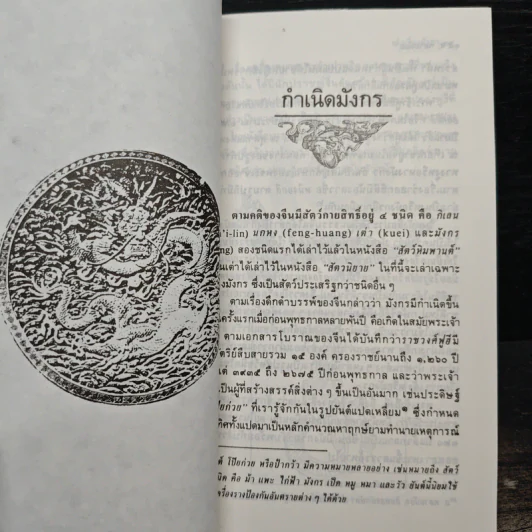 กำเนิดมังกร
ตามคติของจีนมีสัตว์กายสิทธิ์อยู่ ๔ ชนิด คือ กิเลน
'i-lin) นกหง (feng-huang) เต่า (kuei) และมังกร
ng) สองชนิดแรกได้เล่าไว้แล้วในหนังสือ "สัตว์หิมพานต์"
นเต่าได้เล่าไว้ในหนังสือ "สัตว์นิยาย" ในที่นี้จะเล่าเฉพาะ
งมังกร ซึ่งเป็นสัตว์ประเสริฐกว่าชนิดอื่น ๆ
ตามเรื่องดึกดำบรรพ์ของจีนกล่าวว่า มังกรมีกำเนิดขึ้น
ครั้งแรกเมื่อก่อนพุทธกาลหลายพันปี คือเกิดในสมัยพระเจ้า
ตามเอกสารโบราณของจีนได้บันทึกว่าราชวงศ์ฟูฮีมี
ตริย์สืบสายรวม ๑๕ องค์ ครองราชย์นานถึง ๑,๒๖๐ ปี
ต่ ๓๙๓๕ ถึง ๒๖๗๕ ปีก่อนพุทธกาล และว่าพระเจ้า
เป็นผู้ที่สร้างสรรค์สิ่งต่าง ๆ ขึ้นเป็นอันมาก เช่นประดิษฐ์
ป๊ยก่วย" ที่เรารู้จักกันในรูปยันต์แปดเหลี่ยม ซึ่งกำหนด
ทิศทั้งแปดมาเป็นหลักคำนวณหาฤกษ์ยามทำนายเหตุการณ์
ต์ โป๊ยก่วย หรือปากัว มีความหมายหลายอย่าง เช่นหมายถึง สัตว์
นิด คือ ม้า แพะ ไก่ฟ้า มังกร เป็ด หมู หมา และวัว ยันต์นี้นิยมใช้
ครื่องรางป้องกันอันตรายต่าง ๆ ได้ด้วย